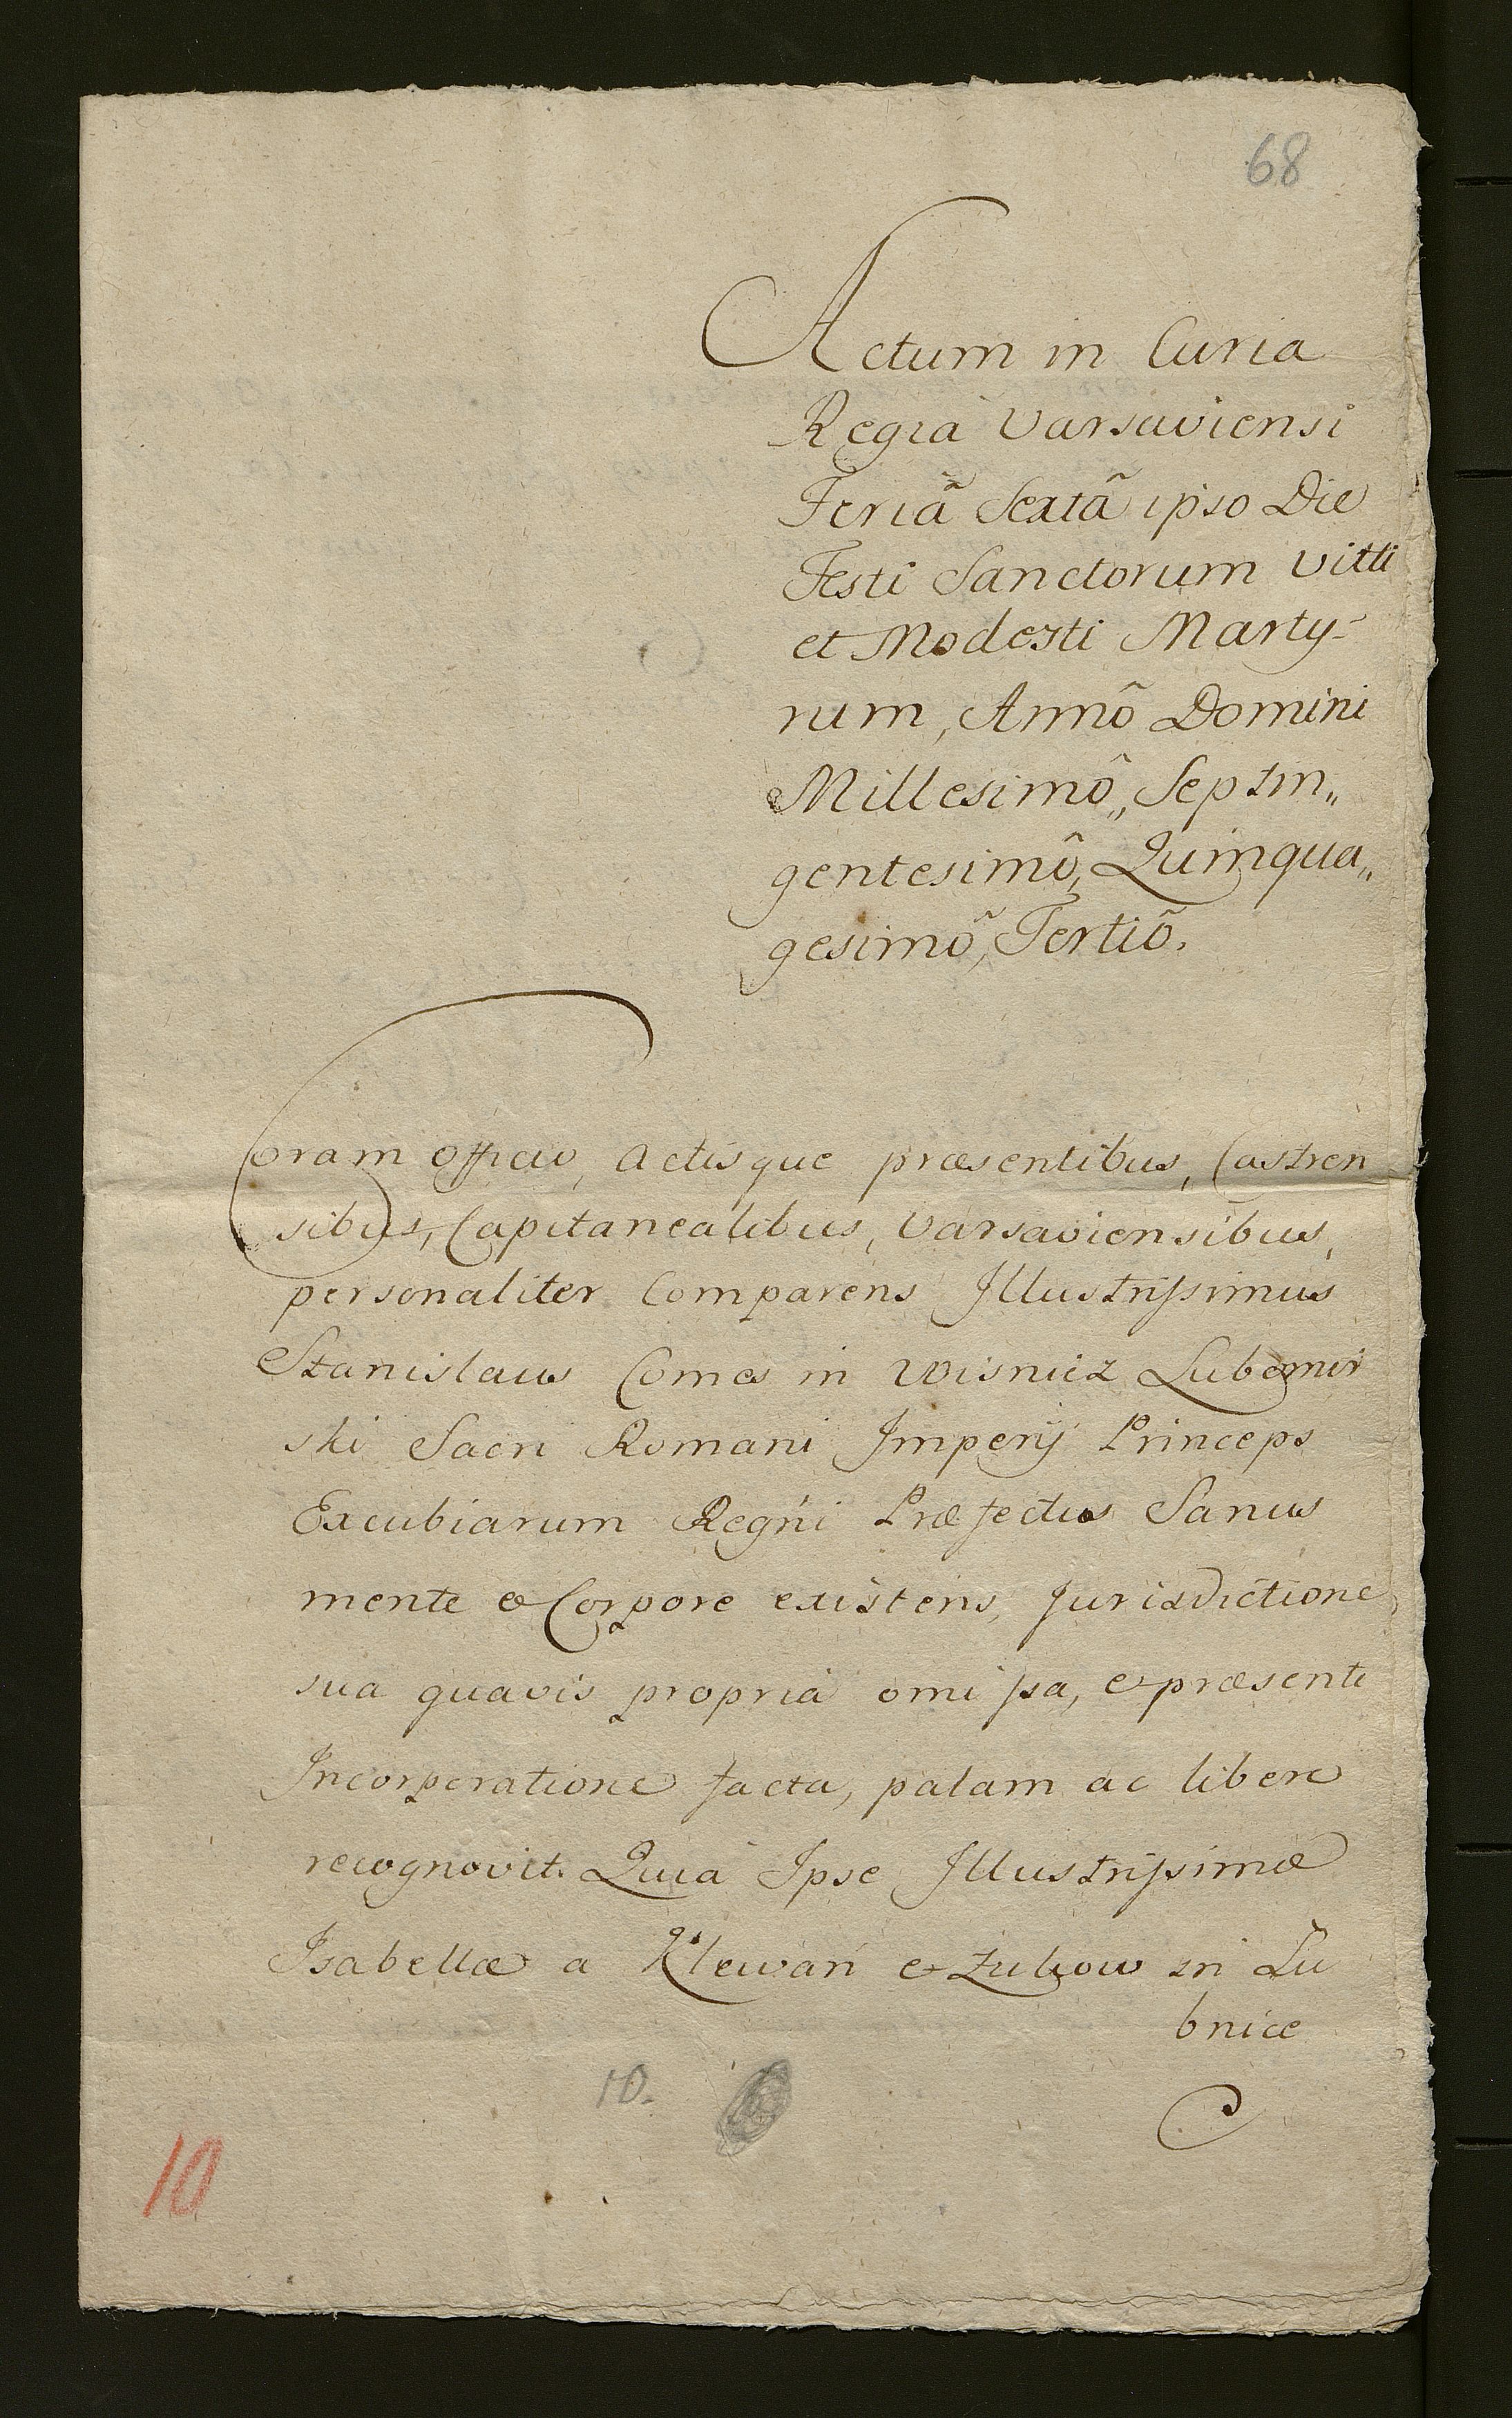 68
Actum in Curia
Regia Varsaviensi
Feriâ Sextâ ipso Die
Festi Sanctorum Vitti
et Modesti Marty-
rum, Annô Domini
Millesimô,, Septin,,
gentesimô, Quinqua,,
gesimô, Tertiô.
Coram officio, Actisque præsentibus, Castren
sibus, Capitanealibus, Varsaviensibus,
personaliter Comparens Illustrissimus
Stanislaus Comes in Wisnicz Lubomir
ski Sacri Romani Imperÿ Princeps
Excubiarum Regni Præfectus Sanus
mente & Corpore existens, Jurisdictione
sua quavis propria omissa, & præsenti
Incorporatione facta, palam ac libere
recognovit. Quia Ipse Illustrissimæ
Isabellæ a Klewań & Zukow in Lu
bnice
10.
10